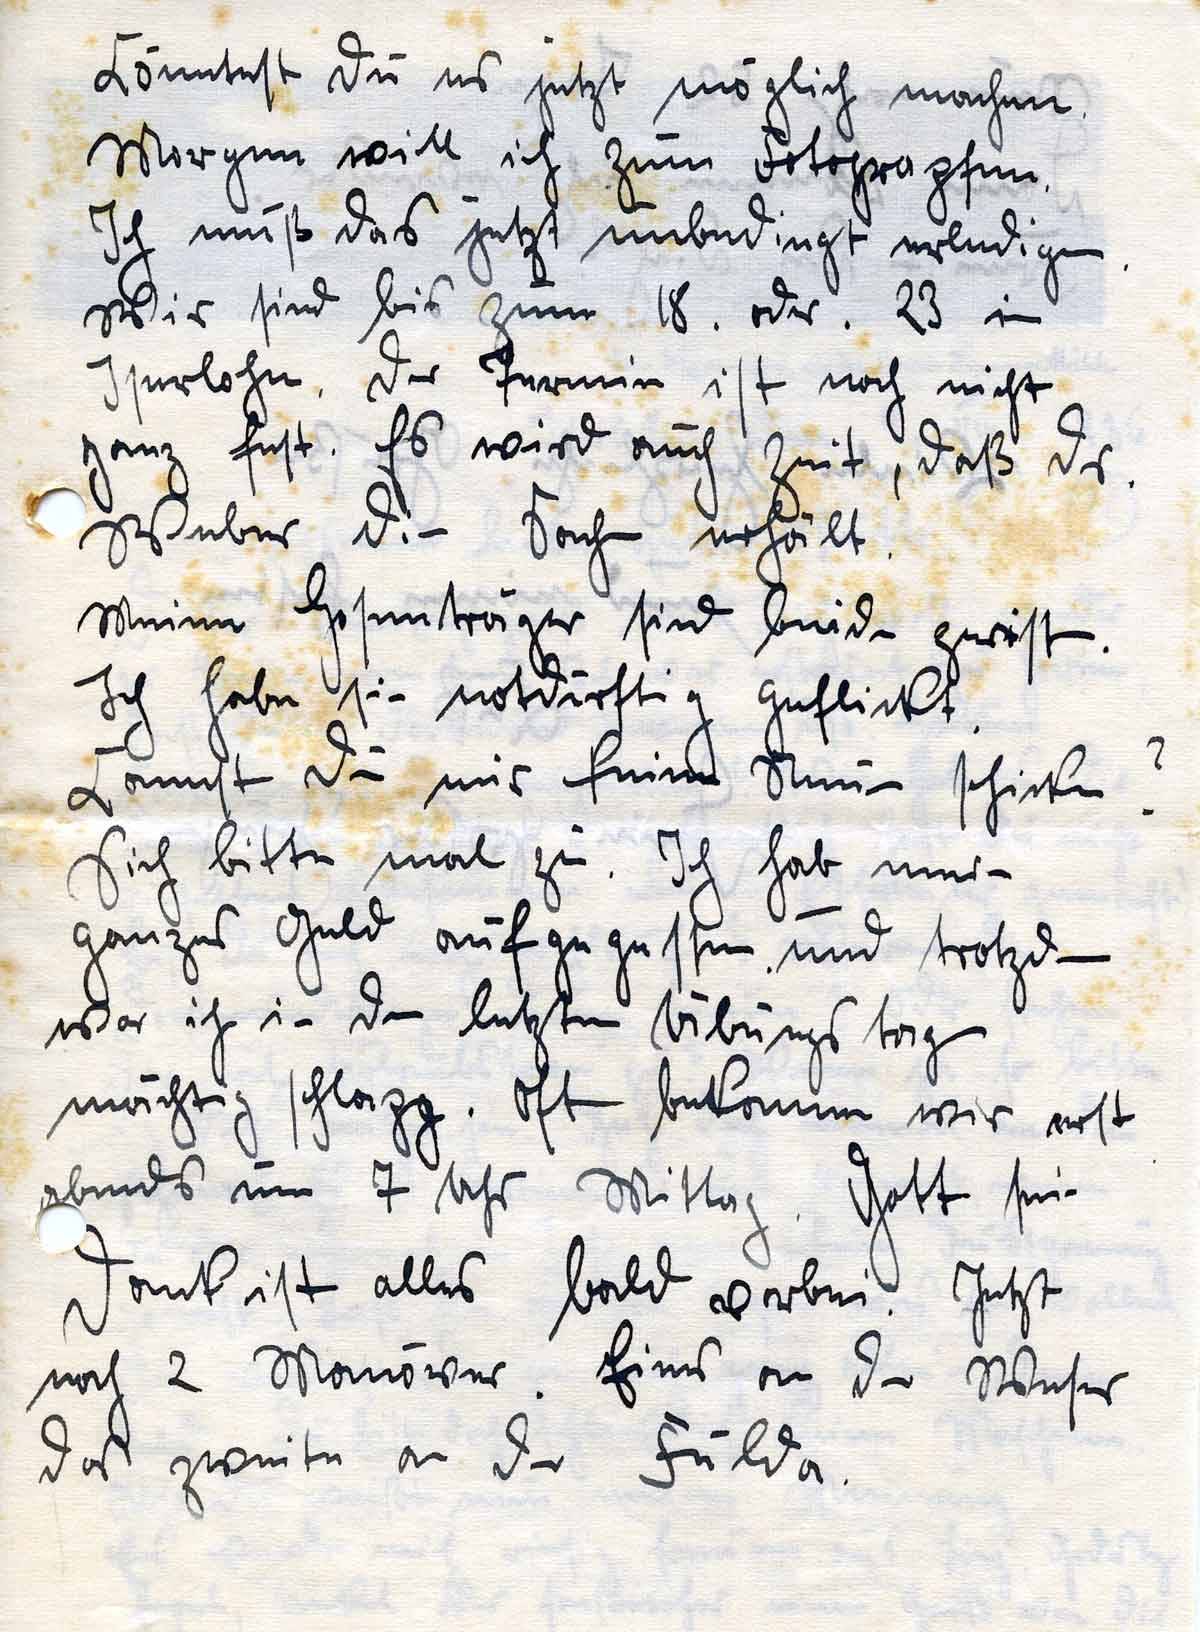 Könntest Du es jetzt möglich machen.
Morgen will ich zum Fotographen.
Ich muß das jetzt unbedingt erledigen.
Wir sind bis zum 18. oder. 23 in
Iserlohn. Der Termin ist noch nicht
ganz fest. Es wird auch Zeit, daß Dr.
Weber die Sache erhält.
Meine Hosenträger sind beide zerisse.
Ich habe sie notdürftig geflickt.
Kannst Du mir keine Neue schicke?
Sieh bitte mal zu. Ich hab mei
ganzes Geld aufgegessen und trotzde
war ich in de letzten Übungstage
mächtig schlapp. Oft bekommen wir erst
abends um 7 Uhr Mittag. Gott sei
Dank ist alles bald vorbei. Jetzt
noch 2 Manöver. Eines an der Weser
das zweite an der Fulda.